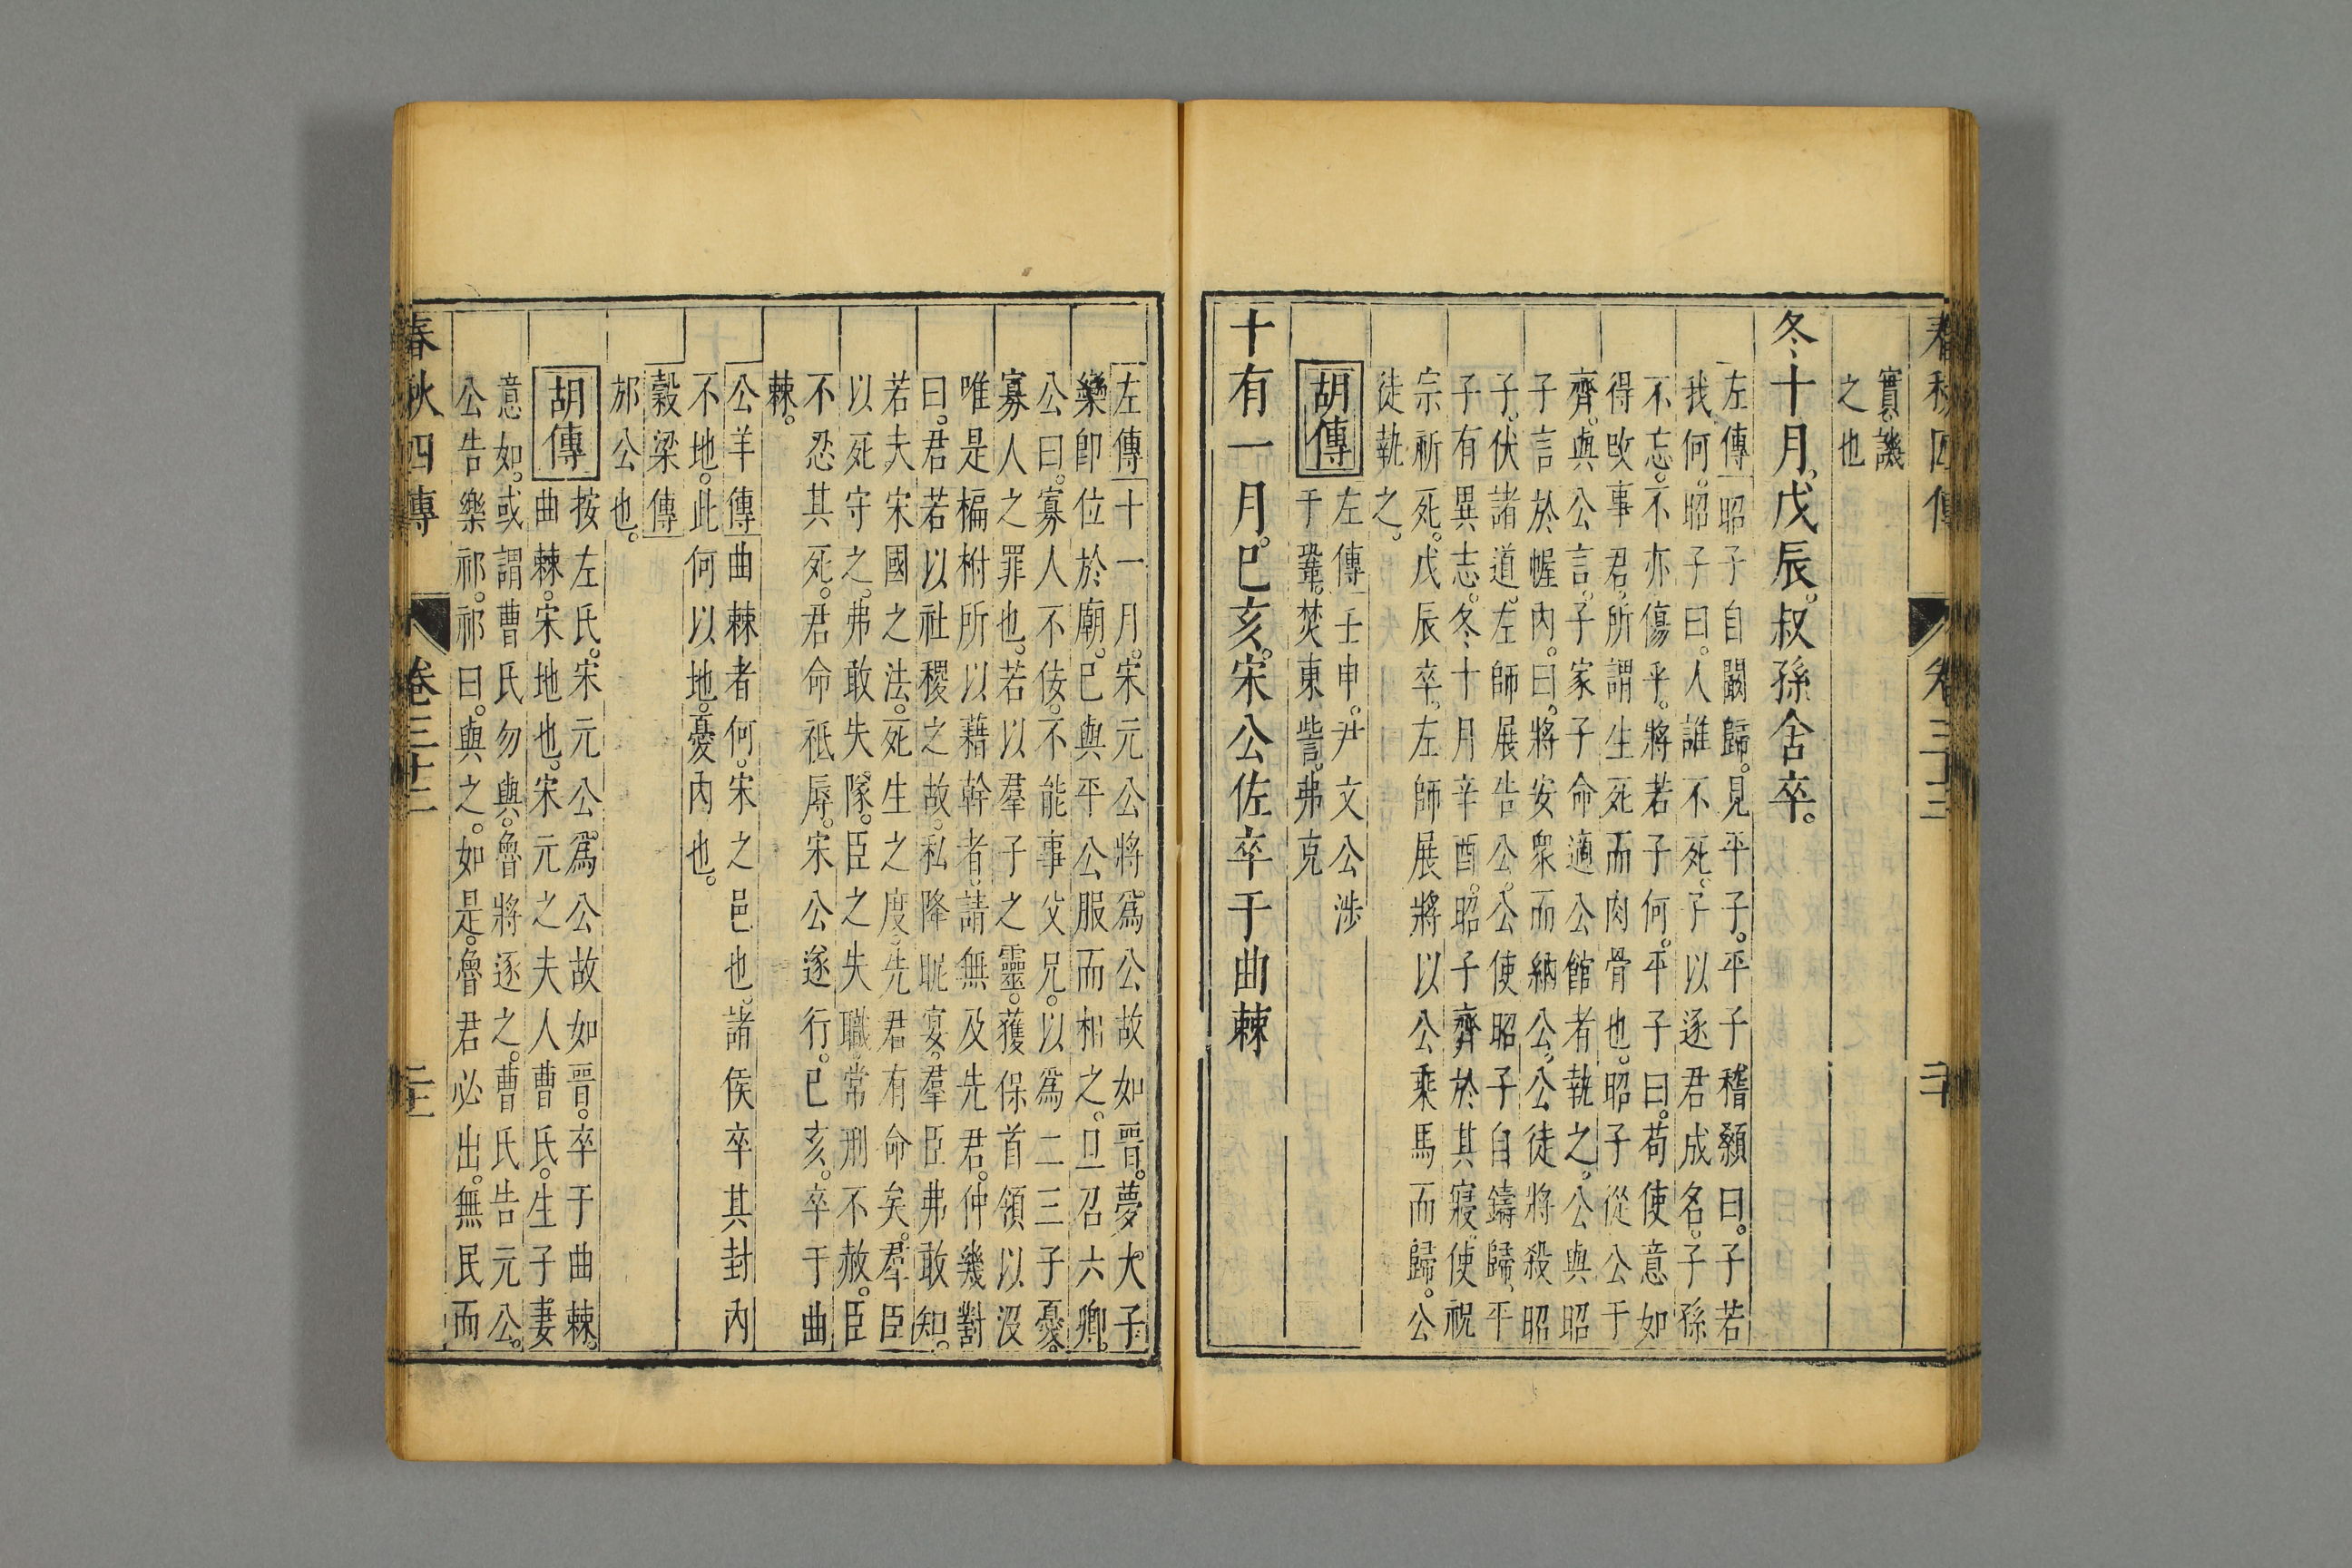 春秋四傳 卷三十三
實譏
之也
冬十月戊辰叔孫舍卒
左傳昭子自闞歸見平子平子稽顙曰子若
我何昭子曰人誰不死子以逐君成名子孫
不忘不亦傷乎將若子何平子曰苟使意如
得改事君所謂生死而肉骨也昭子從公于
齊與公言子家子命適公館者執之公與昭
子言於幄內曰將安衆而納公公徒將殺昭
子伏諸道左師展告公公使昭子自鑄歸平
子有異志冬十月辛酉昭子齊於其寢使祝
宗祈死戊辰卒左師展將以公乘馬而歸公
徒執之
胡傳
左傳壬申尹文公涉
于鞏焚東訾弗克
十有一月己亥宋公佐卒于曲棘
左傳十一月宋元公將爲公故如晉夢大子
欒卽位於廟己與平公服而相之旦召六卿
公曰寡人不佞不能事父兄以爲二三子憂
寡人之罪也若以羣子之靈獲保首領以沒
唯是楄柎所以藉幹者請無及先君仲幾對
曰君若以社稷之故私降昵宴羣臣弗敢知
若夫宋國之法死生之度先君有命矣羣臣
以死守之弗敢失隊臣之失職常刑不赦臣
不忍其死君命祇辱宋公遂行己亥卒于曲
棘
公羊傳曲棘者何宋之邑也諸侯卒其封內
不地此何以地憂內也
穀梁傳
邡公也
胡傳
按左氏宋元公爲公故如晉卒于曲棘
曲棘宋地也宋元之夫人曹氏生子妻
意如或謂曹氏勿與魯將逐之曹氏告元公
公告樂祁祁曰與之如是魯君必出無民而
春秋四傳 卷三十三